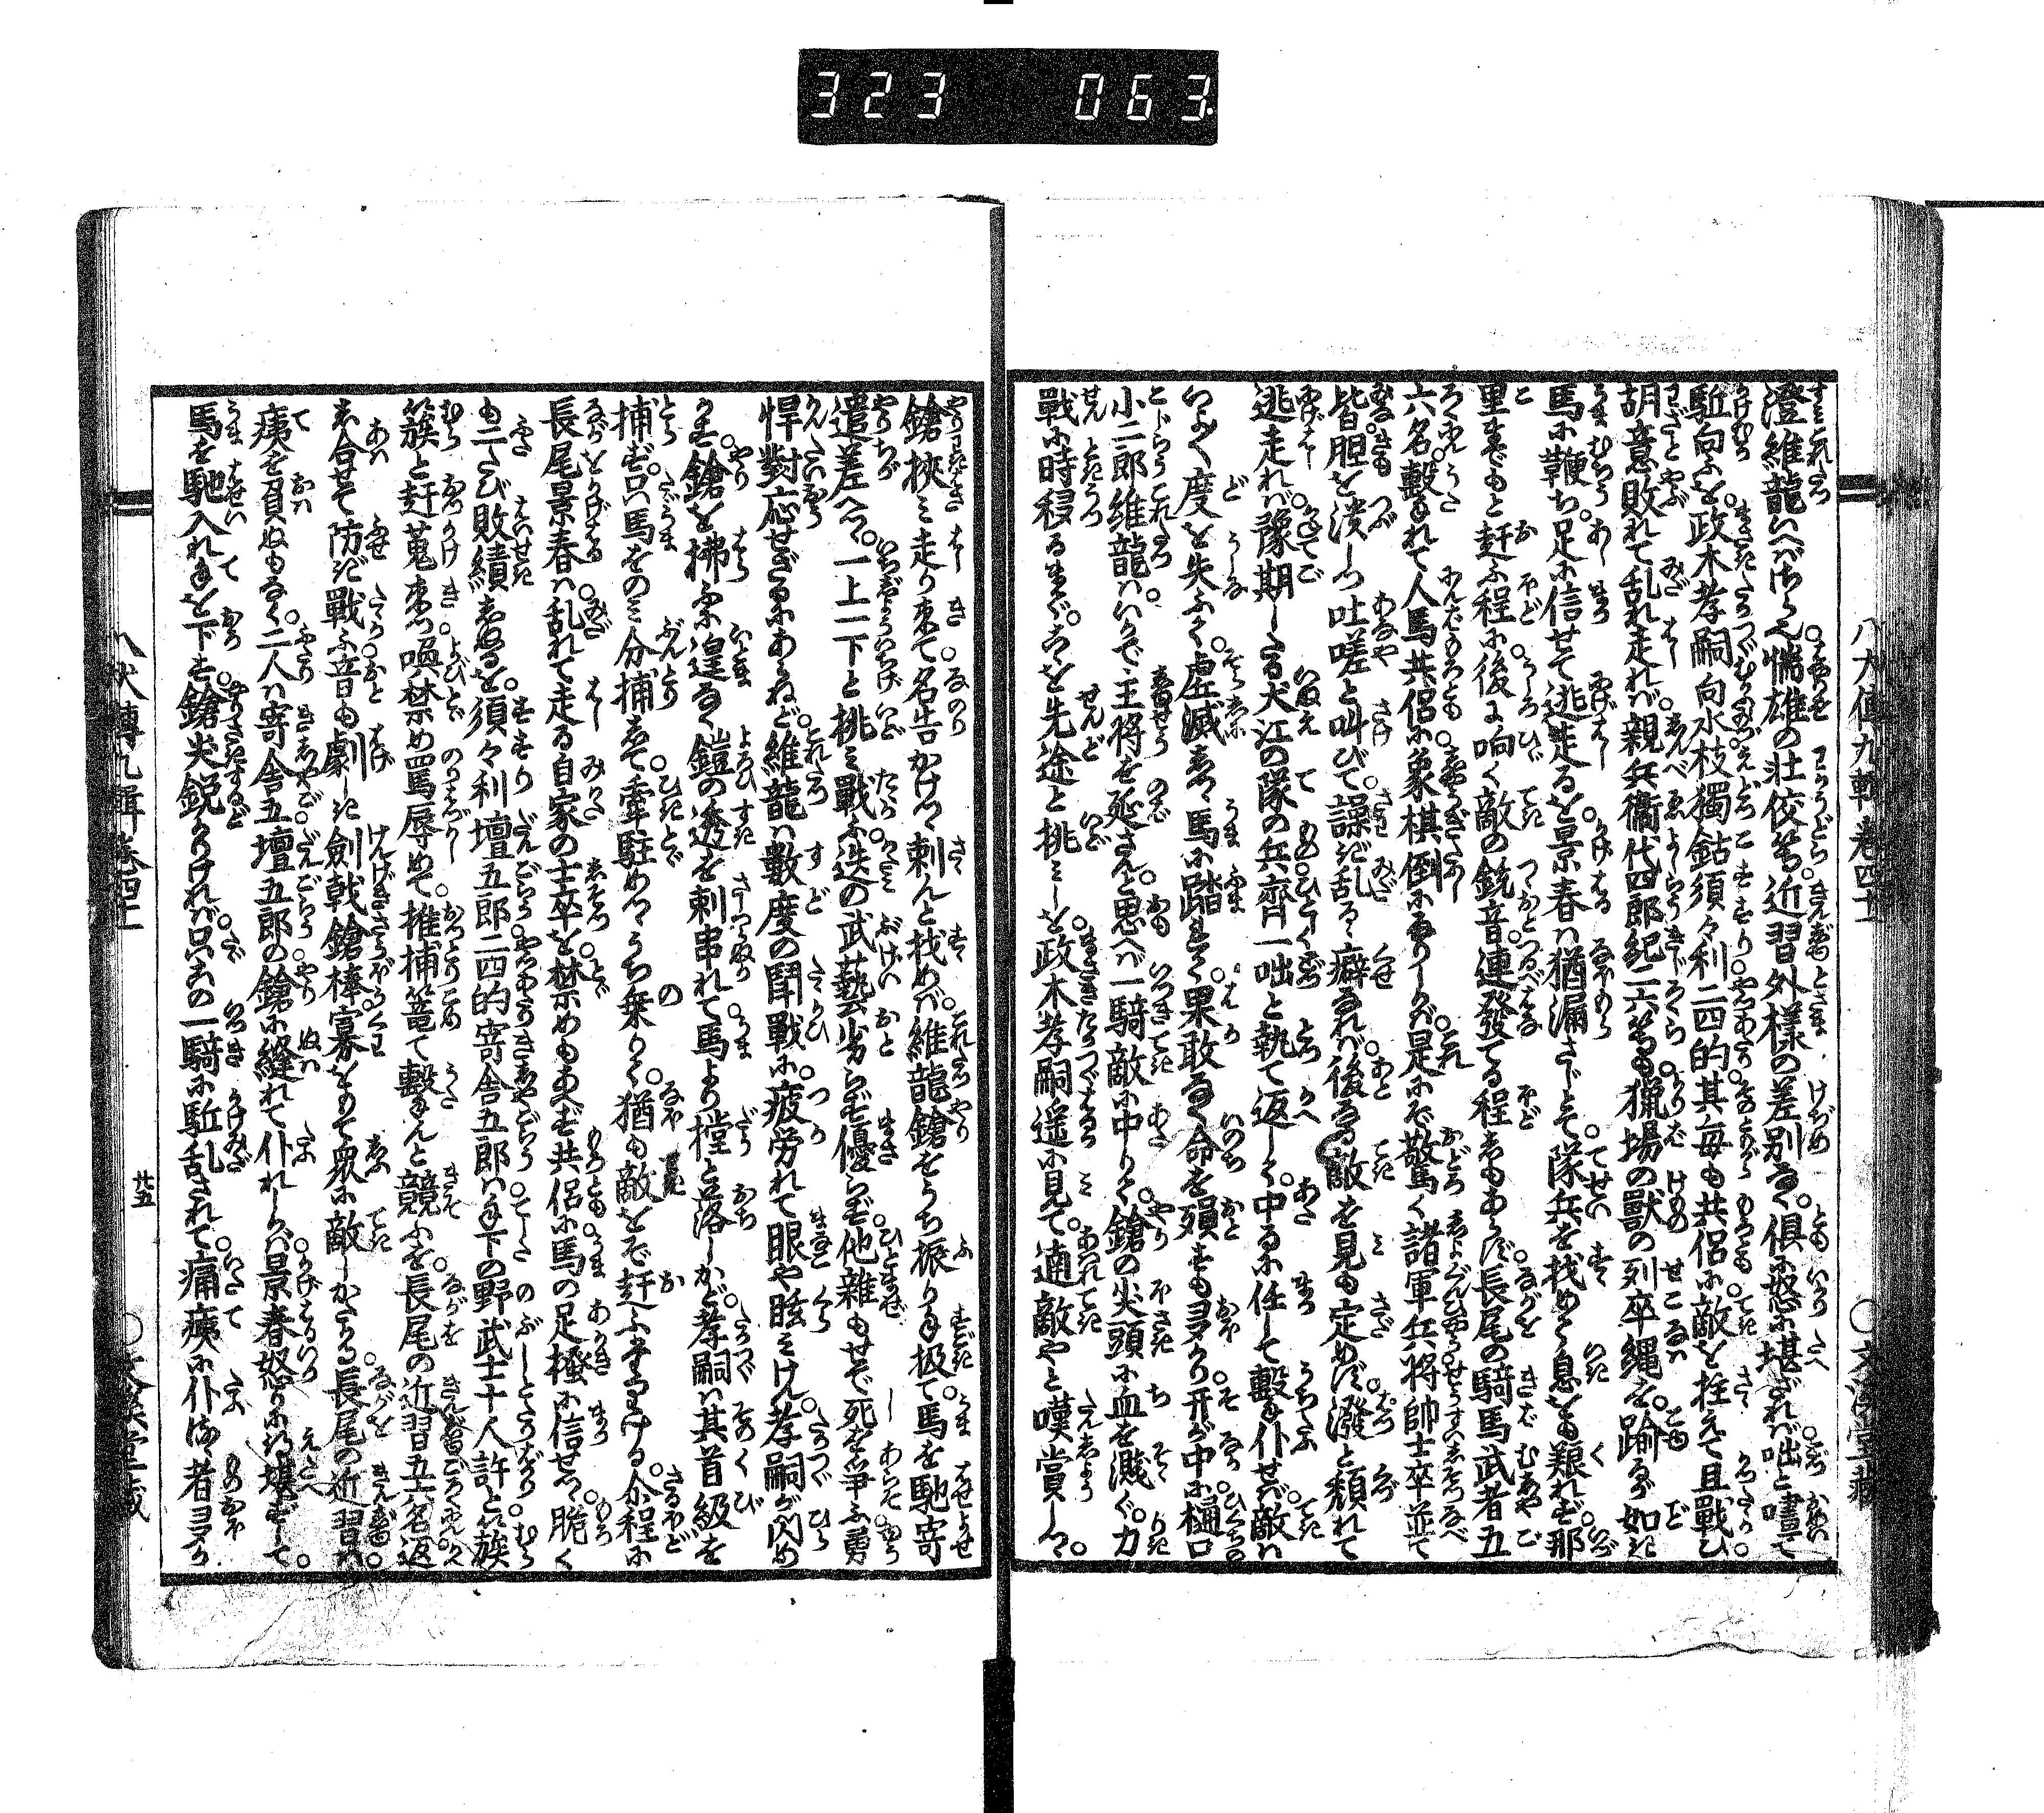 323 063
八犬傳九輯巻四十
○文溪堂藏
澄維龍いへばさら也惴雄の壮佼等近習外様の差別なく倶に怒に堪ざれば咄と嘯て
駈向ふを政木孝嗣向水枝獨鈷須々利二四的其毎も共侶に敵を拄えて且戰ひ
胡意敗れて乱れ走れば親兵衞代四郎紀二六等も猟場の獸の列卒縄を踰るが如き
馬に鞭ち足に信せて逃走るを景春は猶漏さじとて隊兵を找めて息をも艱れず那
里までもと赶ふ程に後に响く敵の銃音連發てる程しもあらず長尾の騎馬武者五
六名撃れて人馬共侶に象棋倒になりしかば是にぞ驚く諸軍兵將帥士卒並て
皆胆を潰しつ吐嗟と叫びて譟ぎ乱るゝ癖なれば後なる敵を見も定めず潑と頽れて
逃走れば豫期したる犬江の隊の兵齊一咄と執て返しつ中るに任して撃仆せば敵は
いよゝ度を失ふて虚滅しつゝ馬に踏れて果敢なく命を殞すも多かり开が中に樋口
小二郎維龍はいかで主將を延さんと思へば一騎敵に中りて鎗の尖頭に血を濺ぐ力
戰に時移るまでこゝを先途と挑みしを政木孝嗣遥に見て適敵やと嘆賞しつゝ
鎗挾み走り來て名告かけつゝ刺んと找めば維龍鎗をうち振り手扱て馬を馳寄
遣差へつゝ一上一下と挑み戰ふ迭の武藝劣らず優らず他雜もせで死を爭ふ勇
悍對應せざるにあらねど維龍は數度の鬪戰に疲労れて眼や眩みけん孝嗣が閃め
かす鎗を拂ふに遑なく鎧の透を刺串れて馬より撲と落しかど孝嗣は其首級を
捕ず只馬をのみ分捕して牽駐めつゝうち乗りて猶も敵をぞ赶ふたりける尒程に
長尾景春は乱れて走る自家の士卒を禁めもあへず共侶に馬の足掻に信せつゝ脆く
も二たび敗績しぬるを須々利壇五郎二四的寄舎五郎は手下の野武士十人許と簇
簇と赶蒐來つ喚禁め罵辱めて推捕篭て撃んと競ふを長尾の近習五六名返
し合せて防ぎ戰ふ音も劇しき劍戟鎗棒寡をもて衆に敵しかたかる長尾の近習は
痍を負ぬもなく二人は寄舎五壇五郎の鎗に縫れて仆れしかば景春怒りに得堪ずして
馬を馳入れ手を下す鎗尖鋭かりければ只この一騎に駈乱されて痛痍に仆るゝ者多かり
八犬傳九輯巻四十
廿五
○文溪堂藏